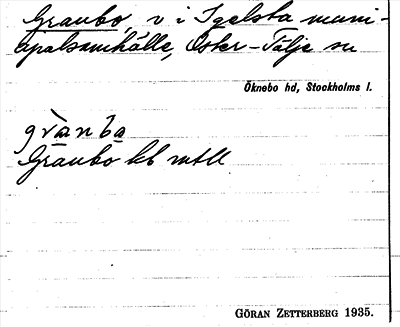 Granbo, v i Igelsta muni-
cipalsamhälle, Öster-Tälje sn
Öknebo hd, Stockholms l.
grànba
Granbo kb mtll
GÖRAN ZETTERBERG 1935.